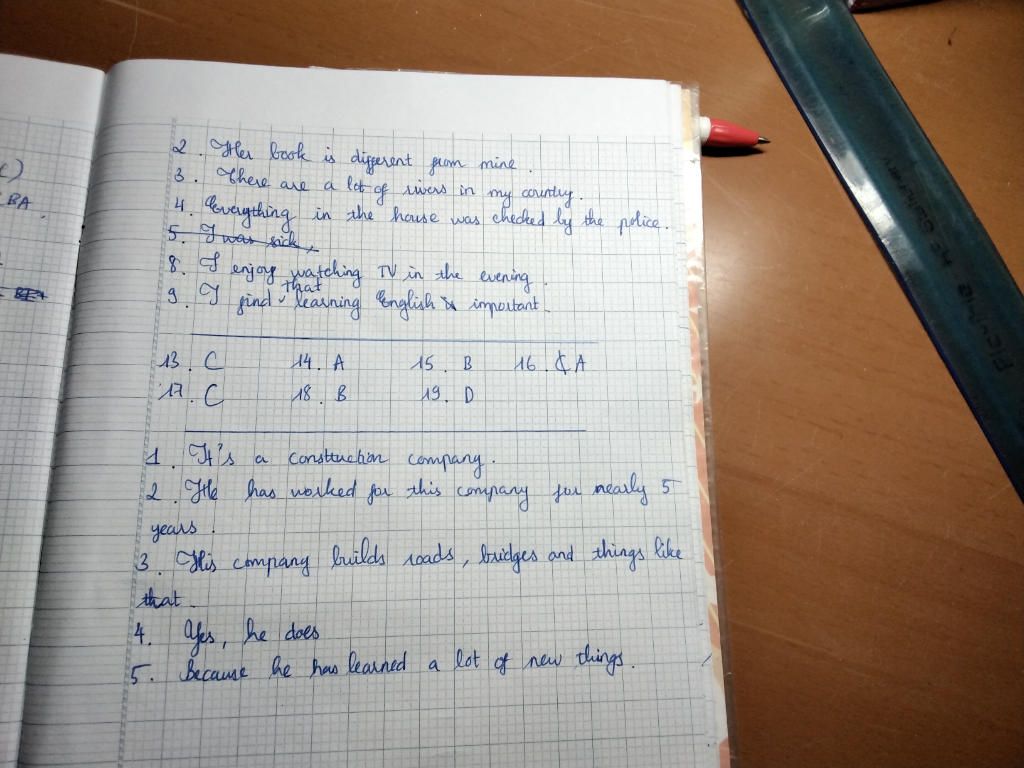 C)
BA.
2. Her book is different from mine.
3. There are a lot of rivers in my country.
4. Everything in the house was checked by the police.
5. I was sick,
8. I enjoy watching TV in the evening.
9. I find that learning English is important.
13. C 14. A 15. B 16. A
17. C 18. B 19. D
1. It's a construction company.
2. He has worked for this company for nearly 5
years.
3. His company builds roads, bridges and things like
that.
4. Yes, he does
5. Because he has learned a lot of new things.